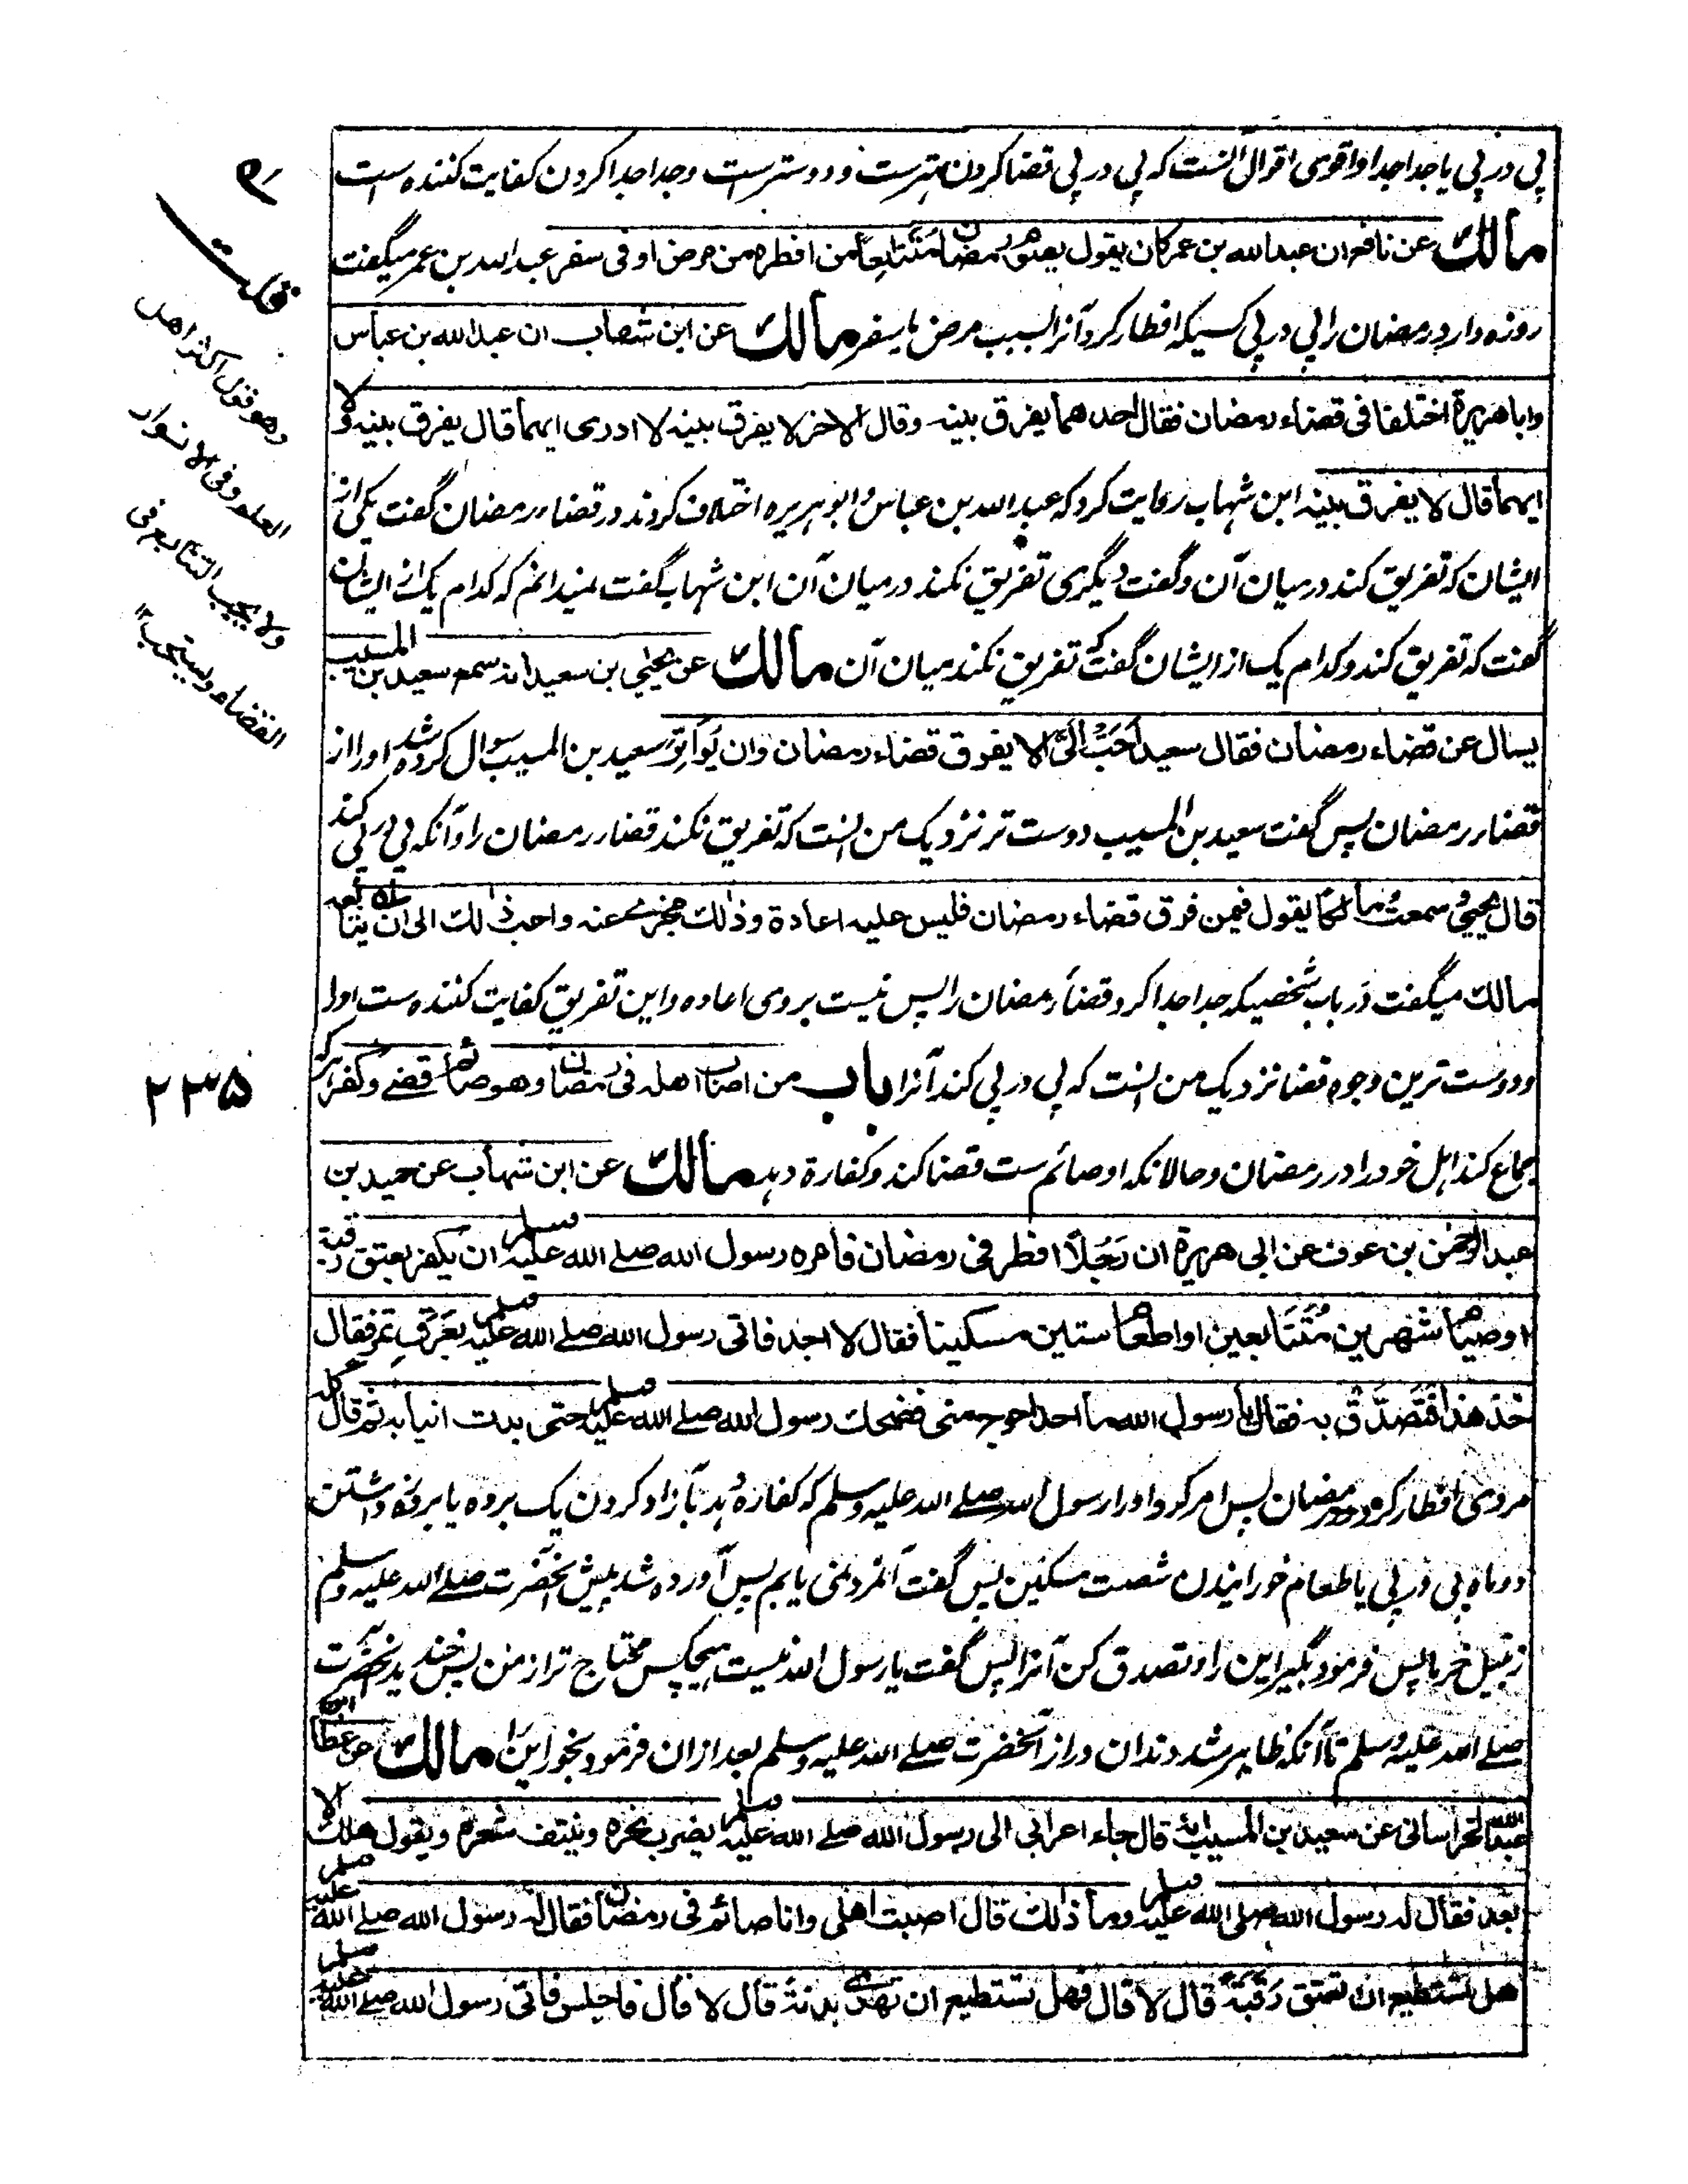 پی در پی یا جدا جدا و اقوی اقوال آنست که پی در پی قضا کردن بهترست و دوسترست و جدا جدا کردن کفایت کننده است
مالك عن نافع ان عبدالله بن عمر كان يقول يصوم رمضان متتابعا من افطره من مرض او فى سفر عبد الله بن عمر میگفت
روزه دارد رمضان را پی در پی کسیکه افطار کرد آنرا بسبب مرض یا سفر مالك عن ابن شهاب ان عبدالله بن عباس
وابا هريرة اختلفا فى قضاء رمضان فقال احدهما يفرق بينه وقال الاخر لا يفرق بينه لا ادرى ايهما قال يفرق بينه ولا
ايهما قال لا يفرق بينه ابن شهاب روایت کرد که عبد الله بن عباس و ابو هریره اختلاف کردند در قضاء رمضان گفت یکی از
ایشان که تفریق کند درمیان آن و گفت دیگری تفریق نکند درمیان آن ابن شهاب گفت نمیدانم که کدام یک از ایشان
گفت که تفریق کند و کدام یک از ایشان گفت که تفریق نکند میان آن مالك عن يحيى بن سعيد انه سمع سعيد بن المسيب
يسال عن قضاء رمضان فقال سعيد احب الى الا يفرق قضاء رمضان وان يواتر سعید بن المسیب سوال کرده شد او را از
قضاء رمضان پس گفت سعید بن المسیب دوست تر نزدیک من آنست که تفریق نکند قضاء رمضان را و آنکه پی در پی کند
قال يحيى سمعت مالكا يقول فيمن فرق قضاء رمضان فليس عليه اعادة وذلك مجزئ عنه واحب ذلك الى ان يتابعه
مالک میگفت در باب شخصیکه جدا جدا کرد قضاء رمضان را پس نیست بروی اعاده و این تفریق کفایت کننده ست اورا
و دوست ترین وجوه قضا نزدیک من آنست که پی در پی کند آنرا باب من اصاب اهله فى رمضان وهو صائم قضى وكفر هر که
جماع کند اهل خود را در رمضان و حالانکه او صائم ست قضا کند و کفارة دهد مالك عن ابن شهاب عن حميد بن
عبد الرحمن بن عوف عن ابى هريرة ان رجلا افطر فى رمضان فامره رسول الله صلى الله عليه وسلم ان يكفر بعتق رقبة
او صيام شهرين متتابعين او اطعام ستين مسكينا فقال لا اجد فاتى رسول الله صلى الله عليه وسلم بعرق تمر فقال
خذ هذا فتصدق به فقال يا رسول الله ما احد احوج منى فضحك رسول الله صلى الله عليه وسلم حتى بدت انيابه ثم قال كله
مردی افطار کرد در رمضان پس امر کرد او را رسول الله صلے الله علیه وسلم که کفاره دهد بآزاد کردن یک برده یا بروزه داشتن
دو ماه پی در پی یا طعام خورانیدن شصت مسکین پس گفت آنمرد نمی یابم پس آورده شد پیش آنحضرت صلے الله علیه وسلم
زنبیل خرما پس فرمود بگیر این را و تصدق کن آنرا پس گفت یا رسول الله نیست هیچکس محتاج تر از من پس خندید آنحضرت
صلے الله علیه وسلم تا آنکه ظاهر شد دندان دراز آنحضرت صلے الله علیه وسلم بعد ازان فرمود بخور این را مالك عن عطا ابن
عبد الله الخراسانى عن سعيد بن المسيب انه قال جاء اعرابى الى رسول الله صلى الله عليه وسلم يضرب نحره وينتف شعره ويقول هلك الا
بعد فقال له رسول الله صلى الله عليه وسلم وما ذلك قال اصبت اهلى وانا صائم فى رمضان فقال له رسول الله صلى الله عليه وسلم
هل تستطيع ان تعتق رقبة قال لا قال فهل تستطيع ان تهدى بدنة قال لا قال فاجلس فاتى رسول الله صلى الله عليه وسلم
قلت
وهو قول اكثر اهل
العلم وفى الانوار
ولا يجب التتابع فى
القضاء ويستحب ١٢
٢٣٥